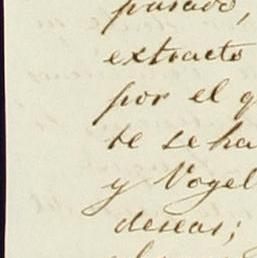 pasado,
extracto
por el q
te se ha
y Vogel
deseas;